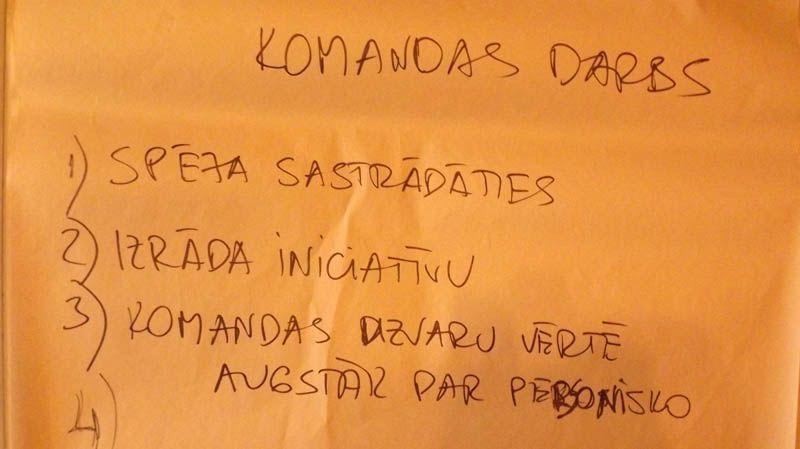 KOMANDAS DARBS
1) SPĒJA SASTRĀDĀTIES
2) IZRĀDA INICIATĪVU
3) KOMANDAS UZVARU VĒRTĒ
AUGSTĀK PAR PERSONISKO
4)